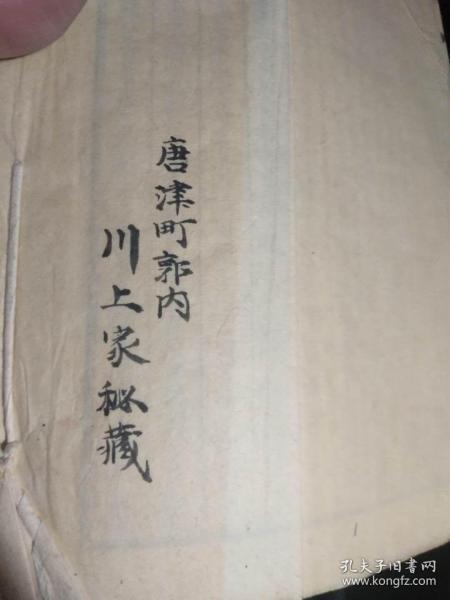 唐津町郭内
川上家秘蔵
孔夫子旧书网
www.kongfz.com